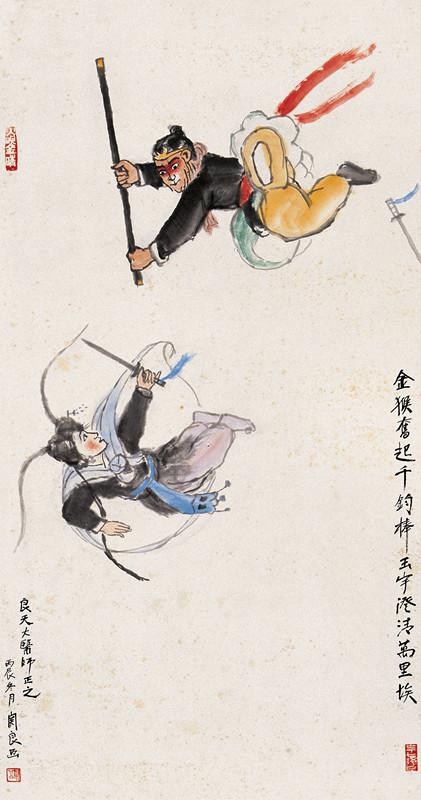 金猴奮起千鈞棒玉宇澄清萬里埃
良天大醫師正之
丙辰冬月 關良画